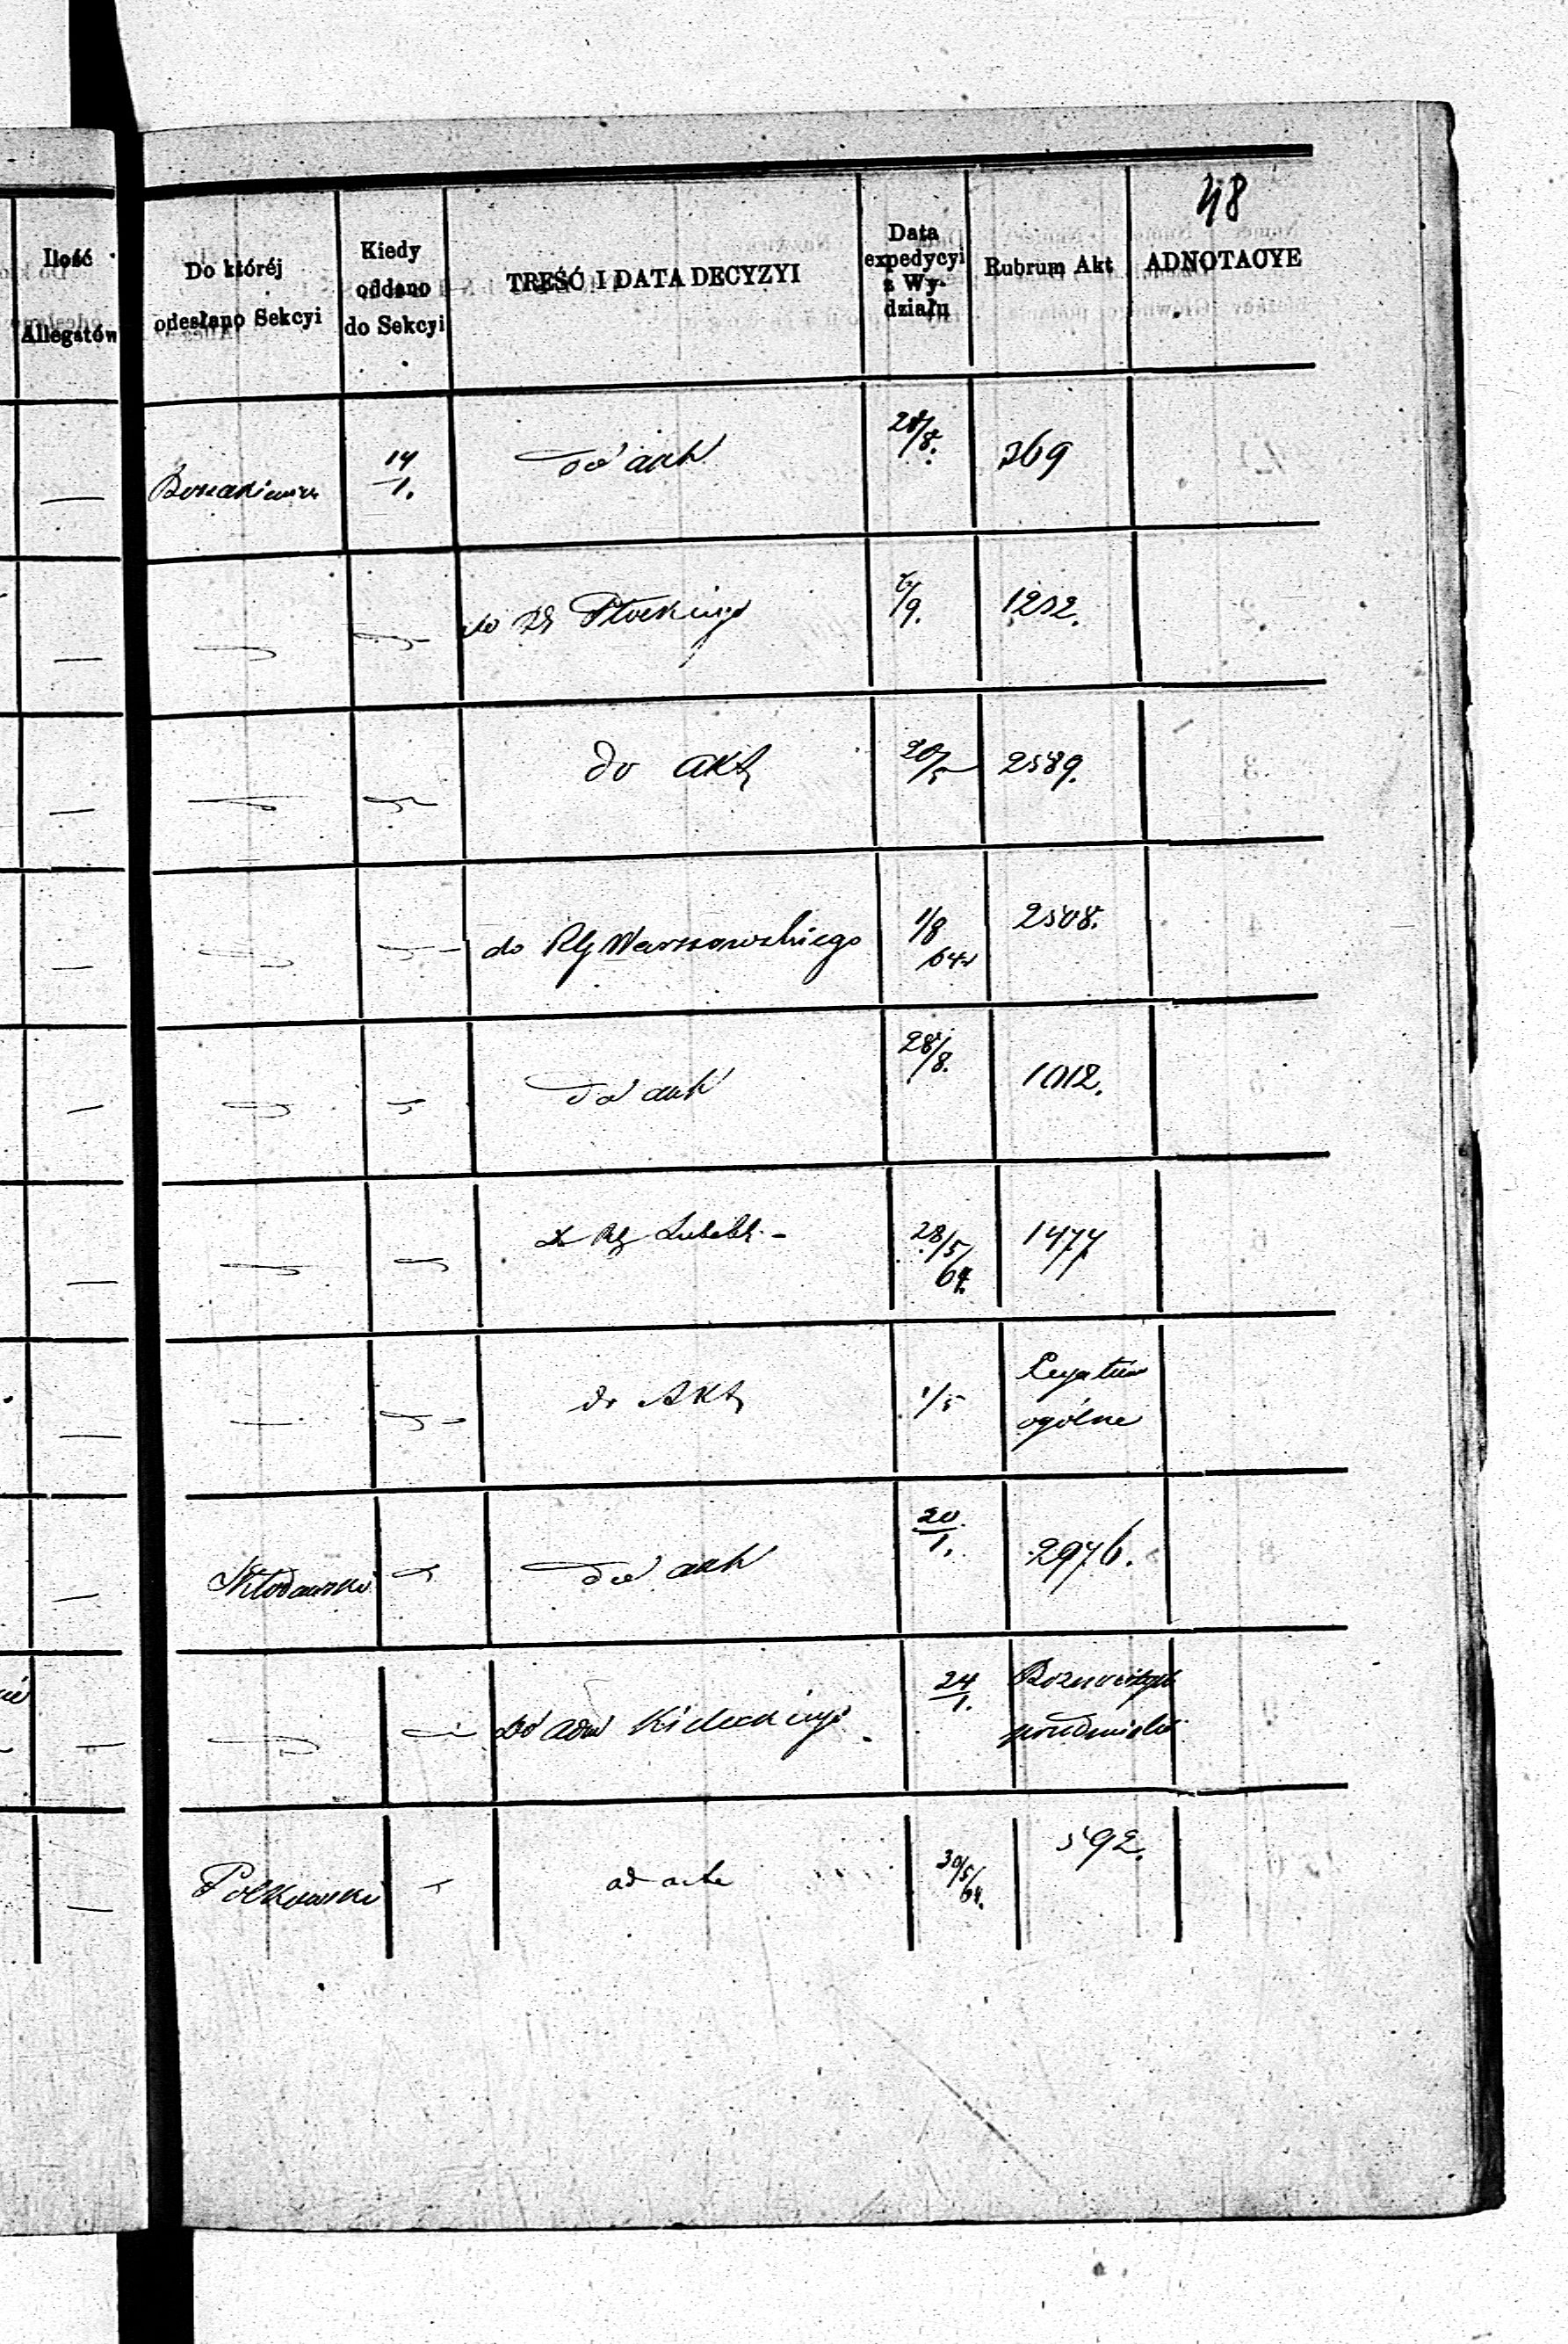 48
Ilość Allegatów
Do któréj odesłano Sekcyi
Kiedy oddano do Sekcyi
TREŚĆ I DATA DECYZYI
Data expedycyi z Wydziału
Rubrum Akt
ADNOTACYE
— 14/1. do akt 28/8. 369
— do RG Płockiego 6/9. 1252.
— do akt 20/5 2589.
— do RG Warszawskiego 1/8 64 2508.
— do akt 28/8. 1012.
— do RG Lubelsk. - 28/5/64. 1477
— do Akt 1/5 ogólne
— Kłodawski do akt 20/1. 2976.
— Do Kieleckiego 24/1.
— Polkowski ad acta 30/5/64. 592.